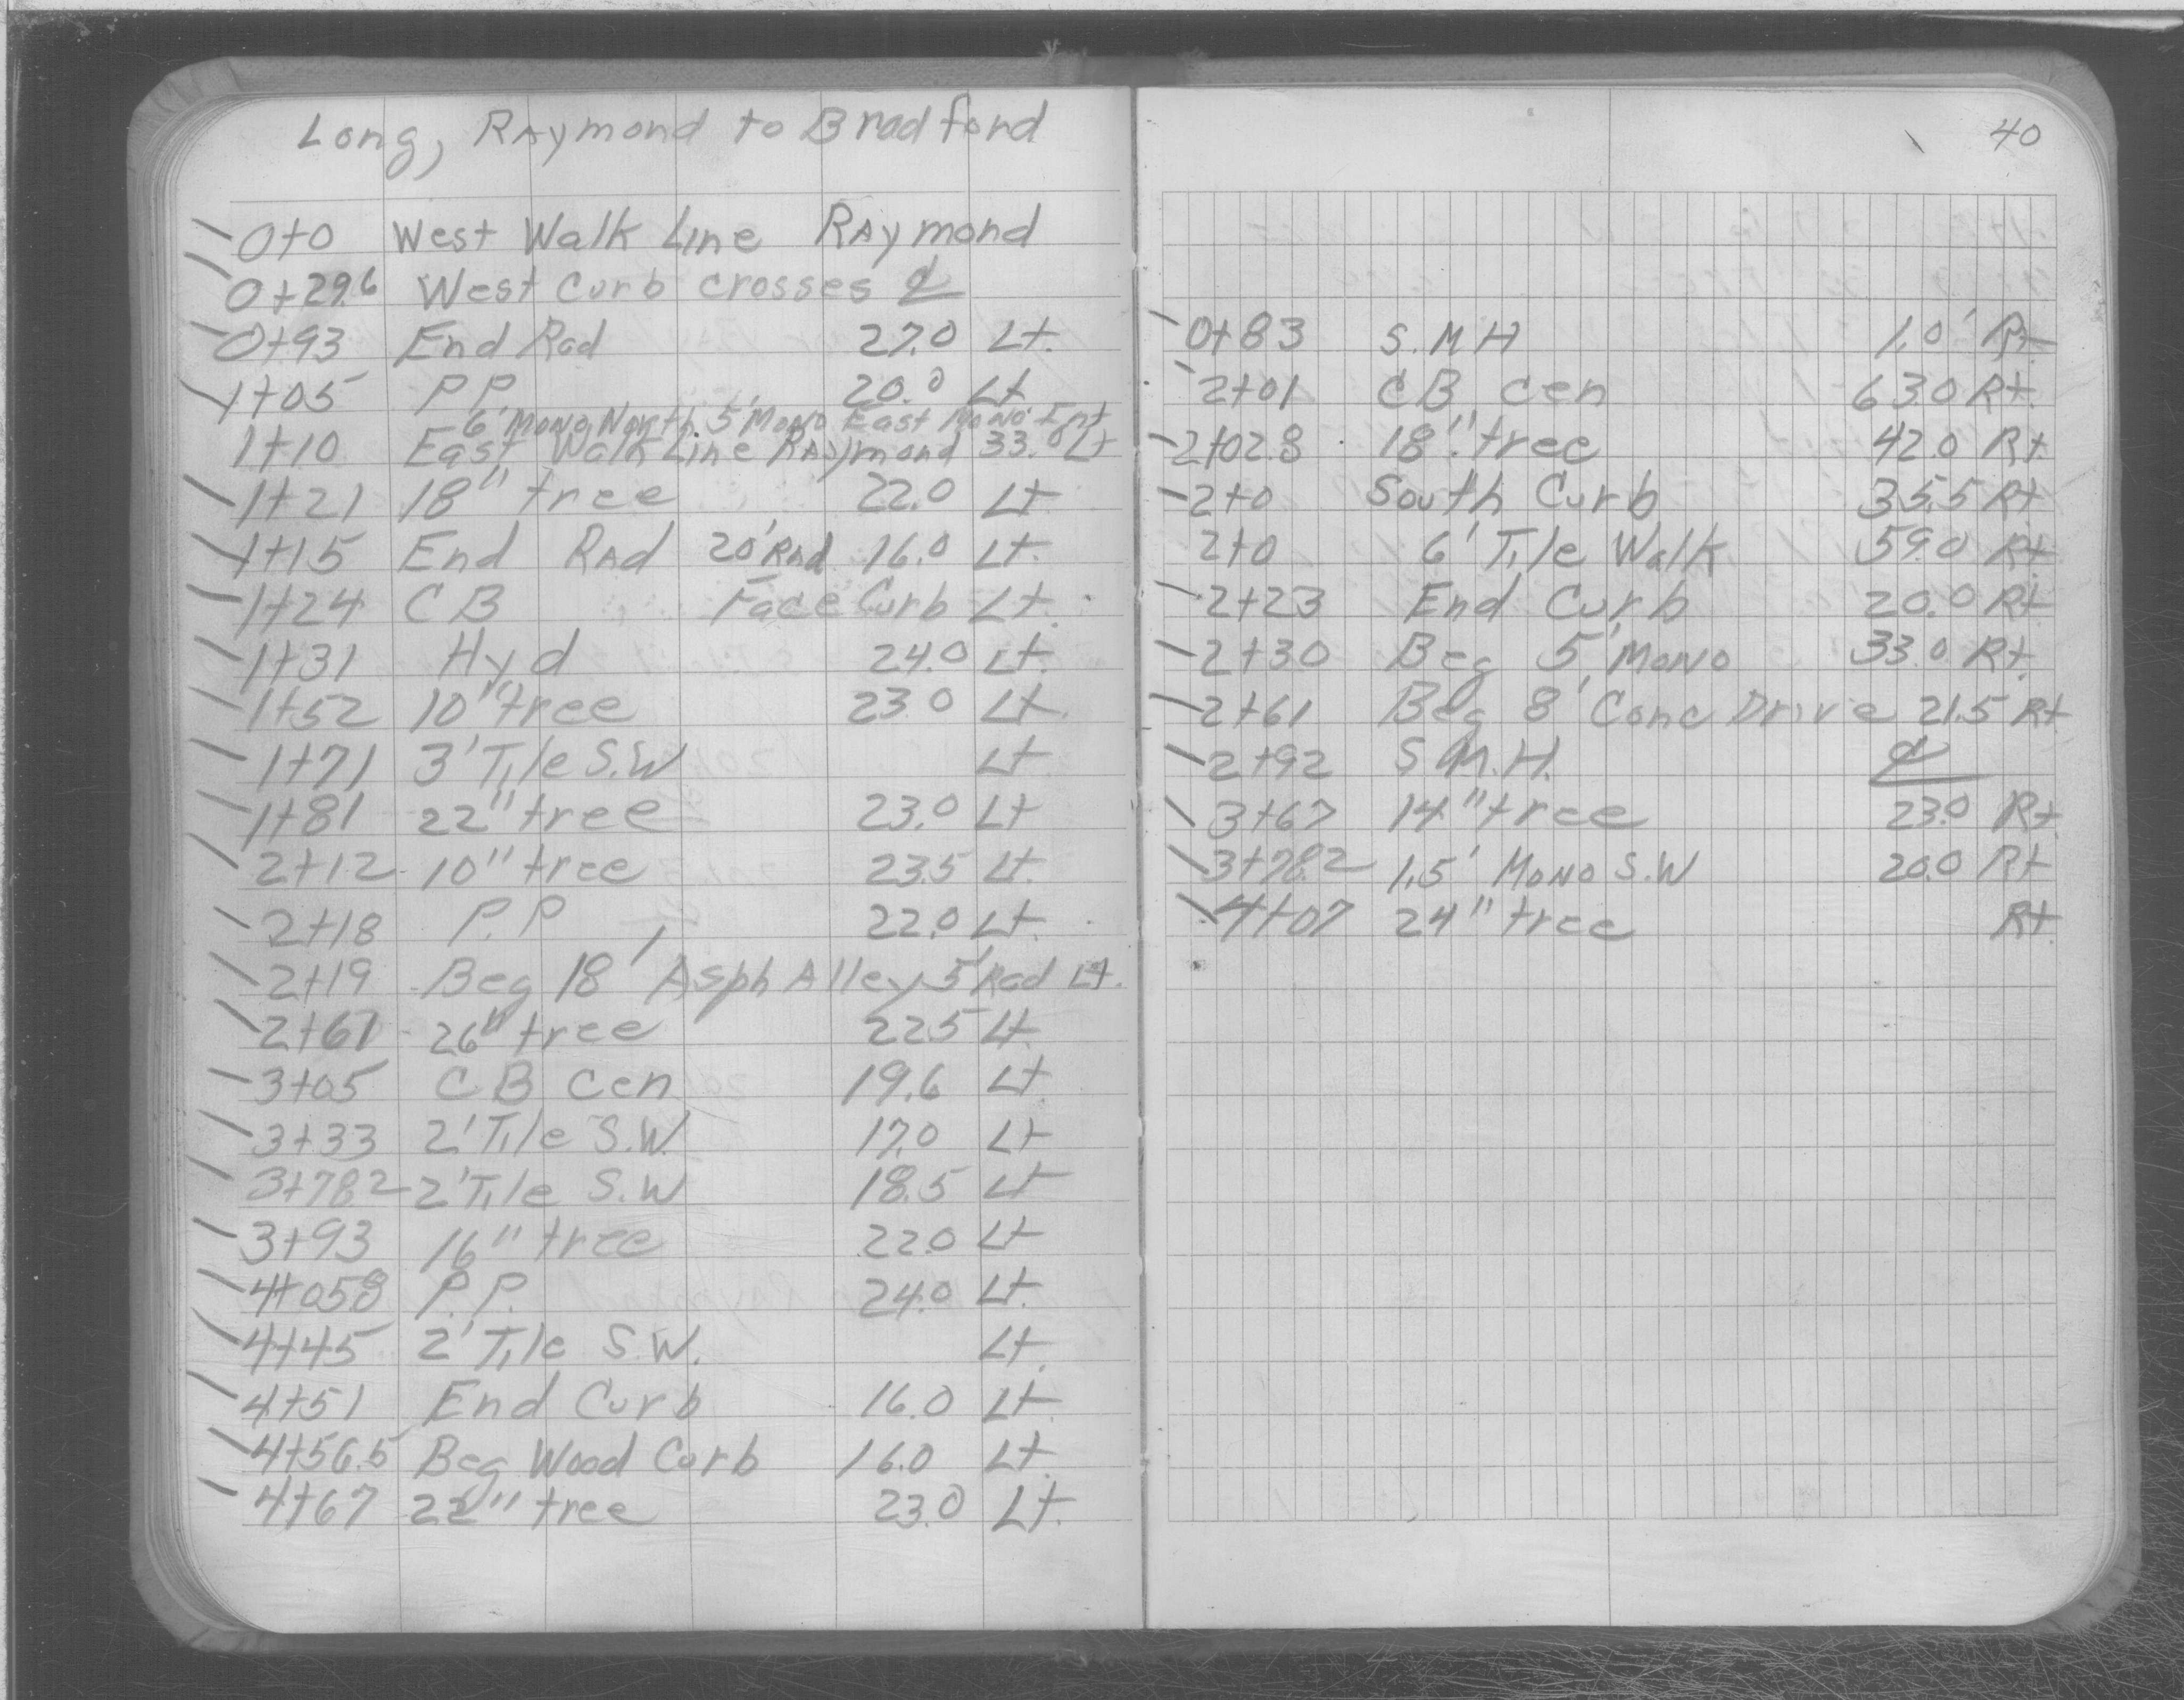 Long, Raymond to Bradford
0+0 West Walk Line Raymond
0+29.6 West Curb crosses ℄
0+93 End Rad 27.0 Lt.
1+05 P.P. 20.0 Lt
6' Mono North. 5' Mono East Mono Ent
1+10 East Walk Line Raymond 33.0 Lt
1+21 18" tree 22.0 Lt
1+15 End Rad 20' Rad 16.0 Lt.
1+24 CB Face Curb Lt.
1+31 Hyd 24.0 Lt.
1+52 10" tree 23.0 Lt.
1+71 3' Tile S.W Lt
1+81 22" tree 23.0 Lt
2+12 10" tree 23.5 Lt.
2+18 P.P 22.0 Lt.
2+19 Beg 18' Asph Alley 5' Rad Lt.
2+61 26" tree 22.5 Lt.
3+05 CB Cen 19.6 Lt
3+33 2' Tile S.W. 17.0 Lt
3+78.2 2' Tile S.W 18.5 Lt
3+93 16" tree 22.0 Lt
4+05.8 P.P. 24.0 Lt.
4+45 2' Tile S.W. Lt.
4+51 End Curb 16.0 Lt.
4+56.5 Beg Wood Curb 16.0 Lt.
4+67 22" tree 23.0 Lt.
40
0+83 S.M.H 1.0' Rt
2+01 CB Cen 63.0 Rt.
2+02.8 18" tree 42.0 Rt
2+0 South Curb 35.5 Rt
2+0 6' Tile Walk 59.0 Rt
2+23 End Curb 20.0 Rt
2+30 Beg 5' Mono 33.0 Rt
2+61 Beg 8' Conc Drive 21.5 Rt
2+92 S.M.H. ℄
3+67 14" tree 23.0 Rt
3+78.2 1.5' Mono S.W 20.0 Rt
4+07 24" tree Rt